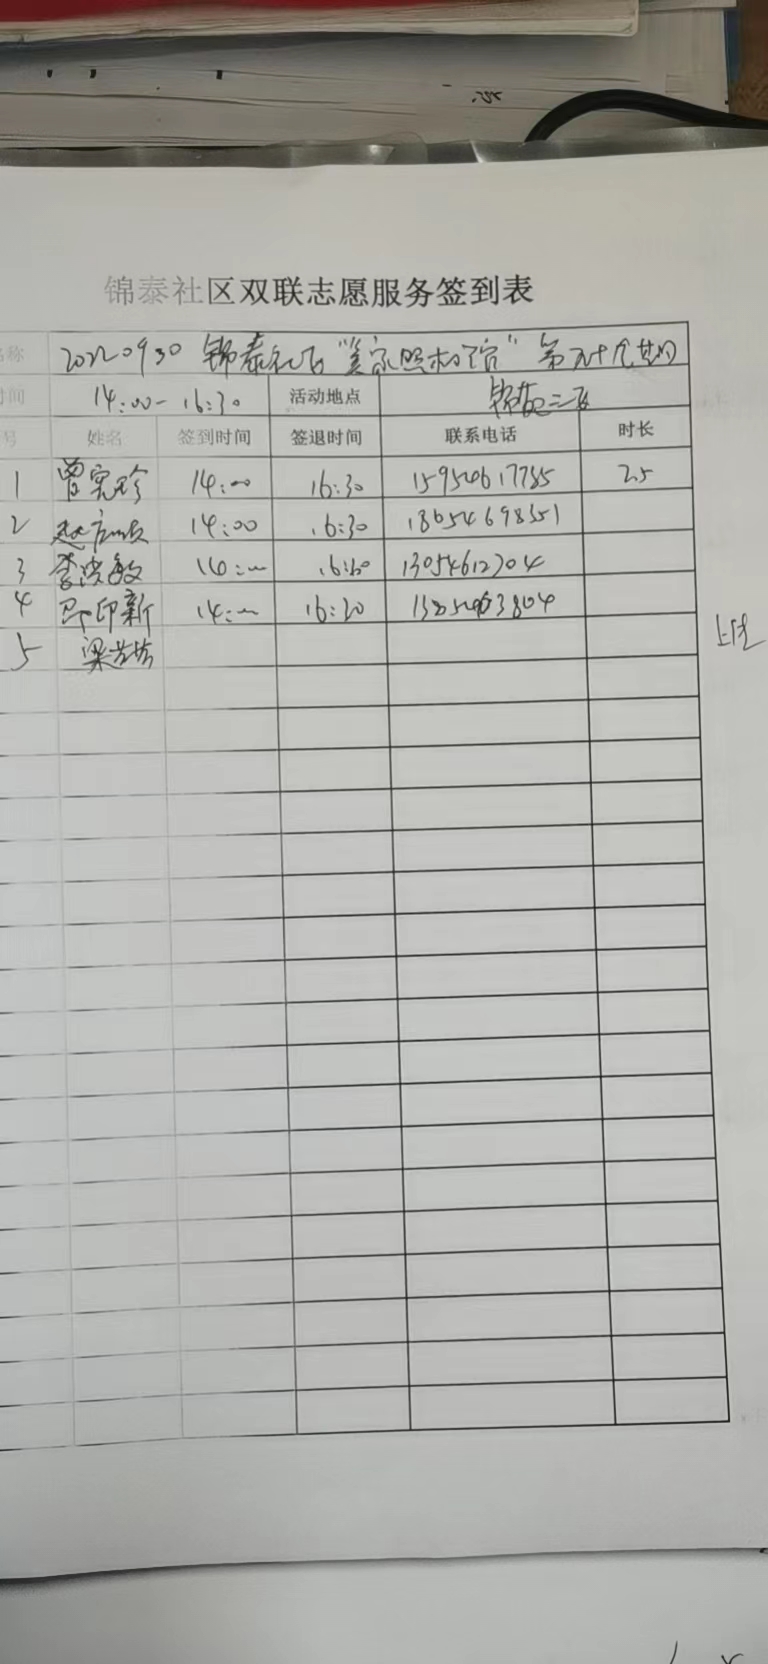 锦泰社区双联志愿服务签到表
称 20220930 锦泰社区“美家照相馆”第五十九期
时间 14:00-16:30 活动地点 锦苑二区
号 姓名 签到时间 签退时间 联系电话 时长
1 曾宪珍 14:00 16:30 15954617755 2.5
2 赵 14:00 16:30 18654698351
3 李洪敏 14:00 16:30 13054612704
4 印新 14:00 16:30
5 梁芳芳